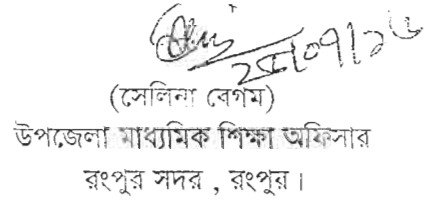 (সেলিনা বেগম)
উপজেলা মাধ্যমিক শিক্ষা অফিসার
রংপুর সদর , রংপুর।